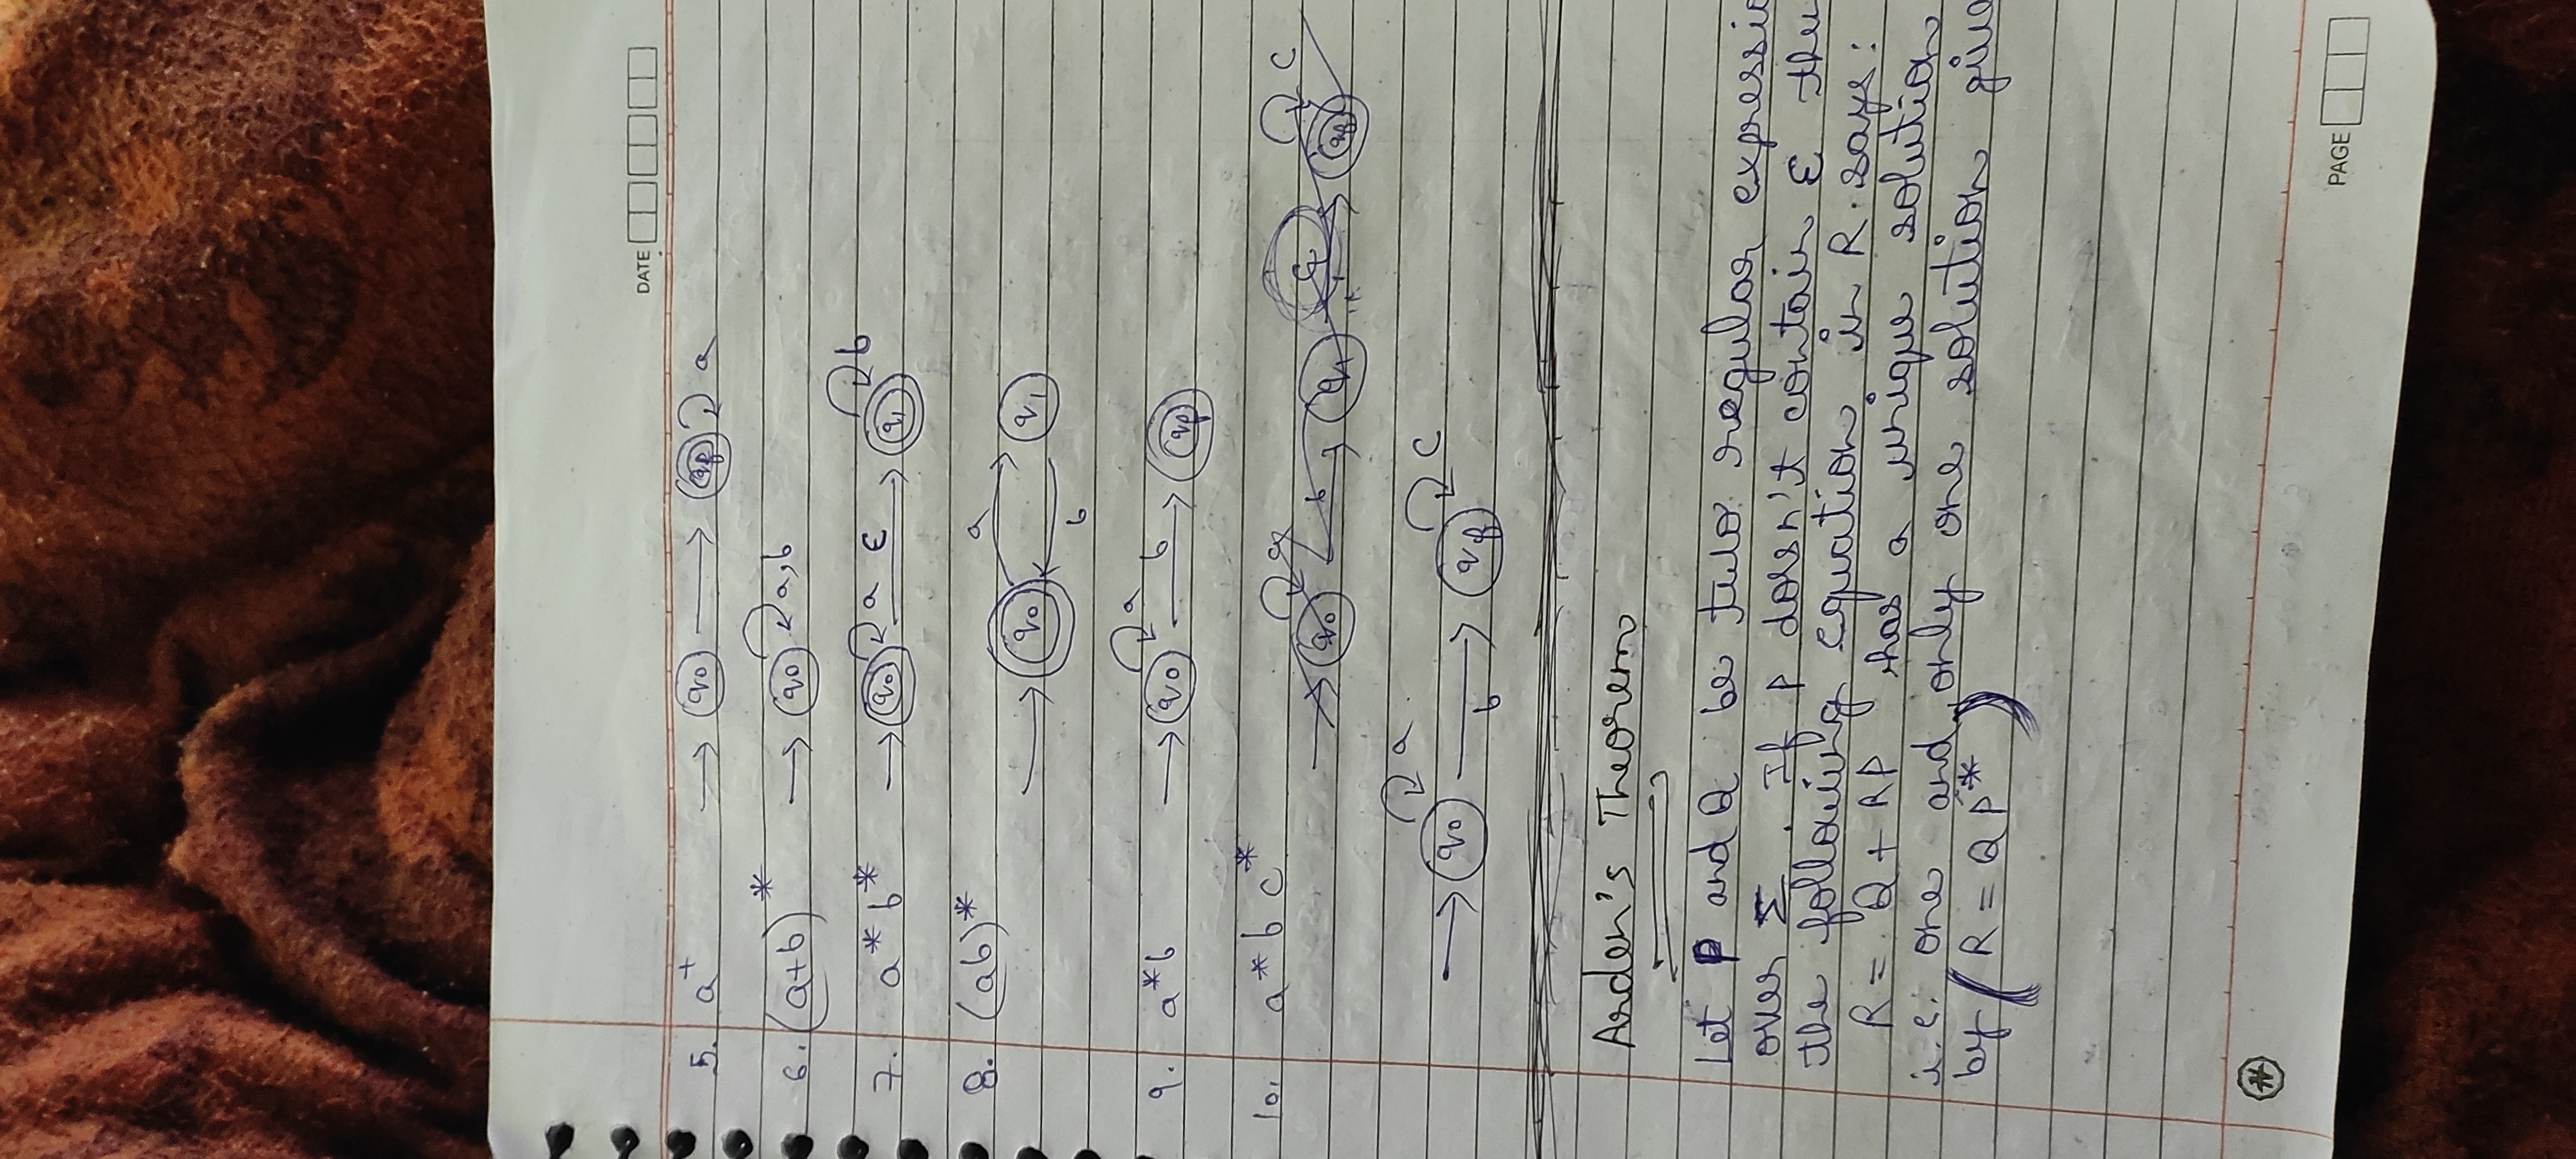 DATE
5. a⁺ → q0 → qf a
6. (a+b)* → q0 a,b
7. a*b* → q0 a ε → q1 b
8. (ab)* a
→ q0 q1
b
9. a*b → q0 a b → qf
10. a*b c*
→ q0 a b → qf c
Arden's Theorem
Let P and Q be two regular expressio
over Σ. If P doesn't contain ε the
the following equation in R says:
R = Q + RP has a unique solution
i.e. one and only one solution give
by (R = QP*)
PAGE